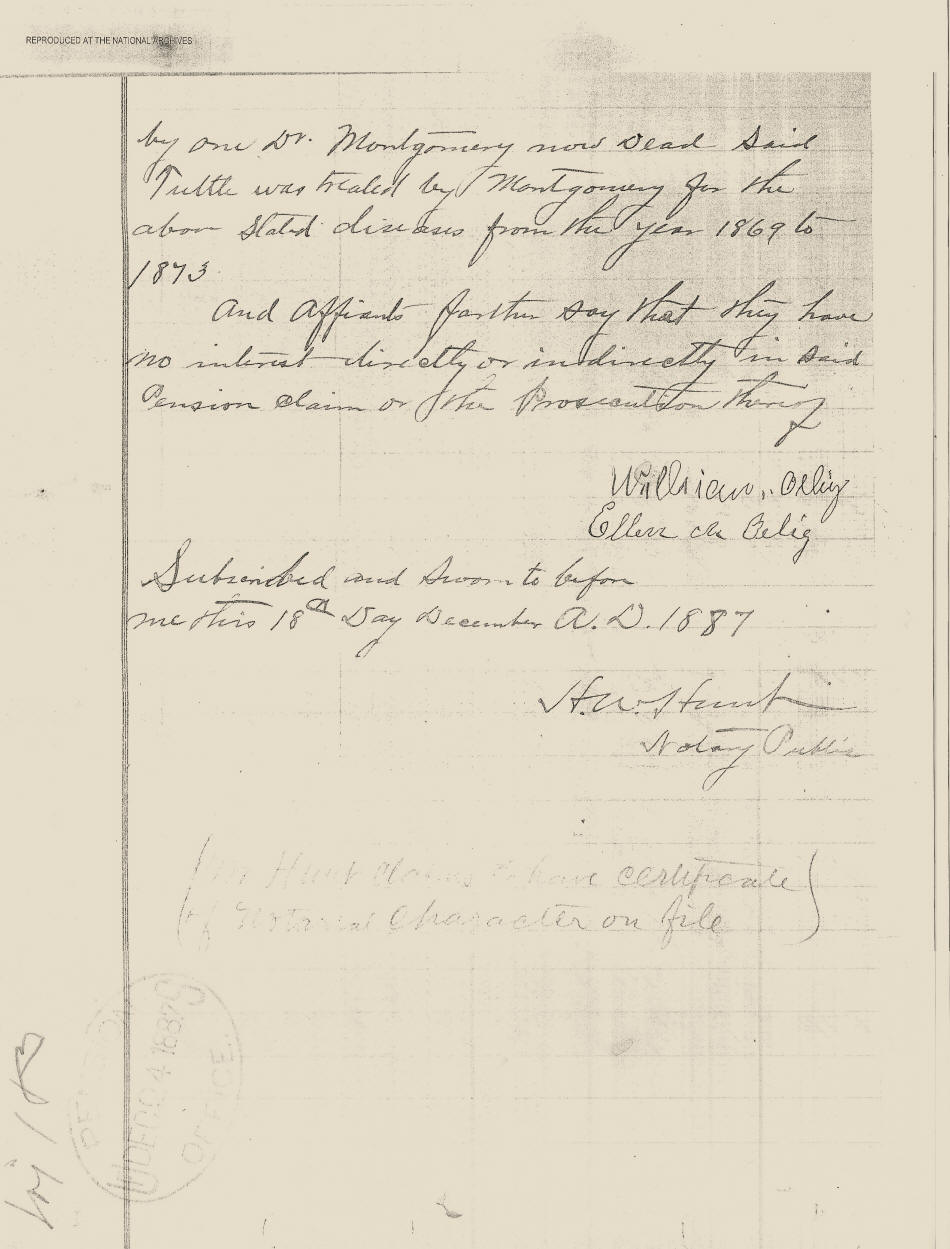 REPRODUCED AT THE NATIONAL ARCHIVES
by one Dr. Montgomery now Dead Said
Tuttle was treated by Montgomery for the
above Stated diseases from the year 1869 to
1873
And Affiants farther say that they have
no interest directly or indirectly in said
Pension claim or the Prosecution thereof
William Oelig
Ellen M Oelig
Subscribed and Sworn to before
me this 18th Day December A.D. 1887
H. W. Hunt
Notary Public
(Mr Hunt Claims to have certificate
of Notarial Character on file)
PENSION
DEC 24 1887
OFFICE